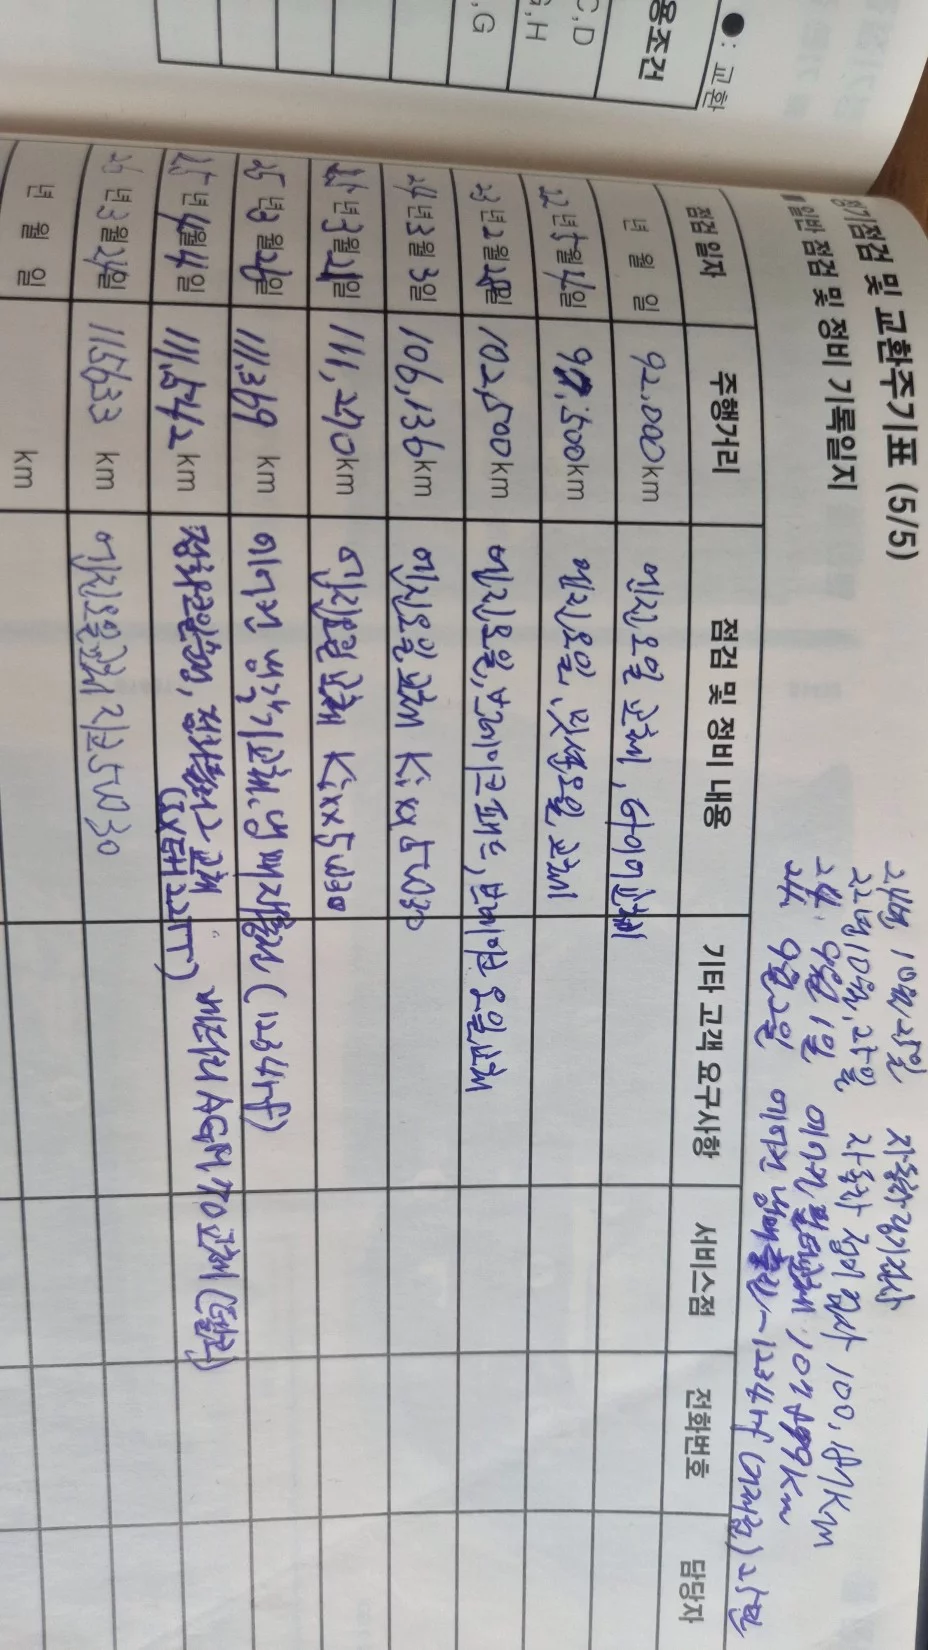 ●: 교환
용조건
C, D
G, H
, G
정기점검 및 교환주기표 (5/5)
일반 점검 및 정비 기록일지
24년 10월 25일 자동차 정기검사
22년 10월 25일 자동차 정기검사 100,187km
24. 9월 1일 에어컨 필터교체 107,499km
24 9월 2일 에어컨 냉매충전 - 1234yf
점검 일자 주행거리 점검 및 정비 내용 기타 고객 요구사항 서비스점 전화번호 담당자
년 월 일 92,000km 엔진오일 교체, 타이어교체
22년 5월 4일 97,500km 엔진오일, 밋션오일 교체
23년 2월 28일 102,500km 엔진오일, 브레이크패드, 브레이크오일교체
24년 3월 3일 106,136km 엔진오일교체 Kixx 5W30
25년 3월 21일 111,270km 엔진오일교체 Kixx 5W30
25년 3월 26일 111,369 km 에어컨 냉각기교체, 냉매재충전 (1234yf)
25년 4월 4일 111,542 km 점화코일, 점화플러그 교체 배터리 AGM70 교체 (델코)
(SXEH22TT)
26년 3월 24일 115633 km 엔진오일교체 지크 5W30
년 월 일 km